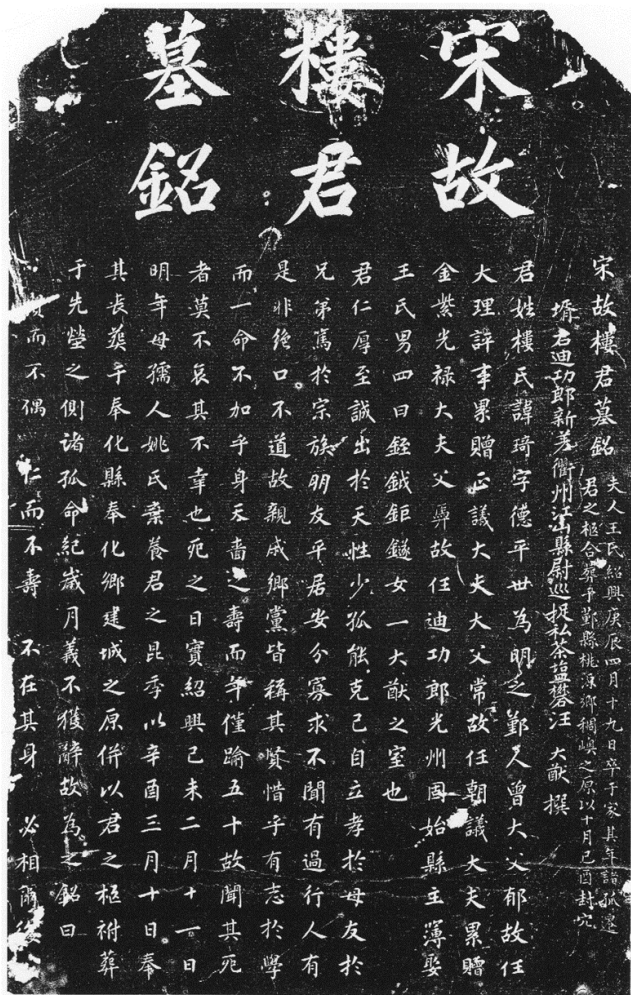 宋故
樓君
墓銘
宋故樓君墓銘
夫人王氏紹興庚辰四月十九日卒于家其年諸孤遷
君之柩合葬于鄞縣桃源鄉稠嶼之原以十月己酉封穴
壻右迪功郎新差衢州江山縣尉巡捉私茶鹽礬汪大猷撰
君姓樓氏諱琦字德平世為明之鄞人曾大父郁故任
大理評事累贈正議大夫大父常故任朝議大夫累贈
金紫光祿大夫父彝故任迪功郎光州固始縣主薄娶
王氏男四曰銍鉞鉅鐩女一大猷之室也
君仁厚至誠出於天性少孤能克己自立孝於母友於
兄弟篤於宗族朋友平居安分寡求不聞有過行人有
是非絕口不道故親戚鄉黨皆稱其賢惜乎有志於學
而一命不加乎身天嗇之壽而年僅踰五十故聞其死
者莫不哀其不幸也死之日實紹興己未二月十一日
明年母孺人姚氏棄養君之昆季以辛酉三月十日奉
其喪葬于奉化縣奉化鄉建城之原併以君之柩祔葬
于先塋之側諸孤命紀歲月義不獲辭故為之銘曰
而不偶 仁而不壽 不在其身 必相爾後